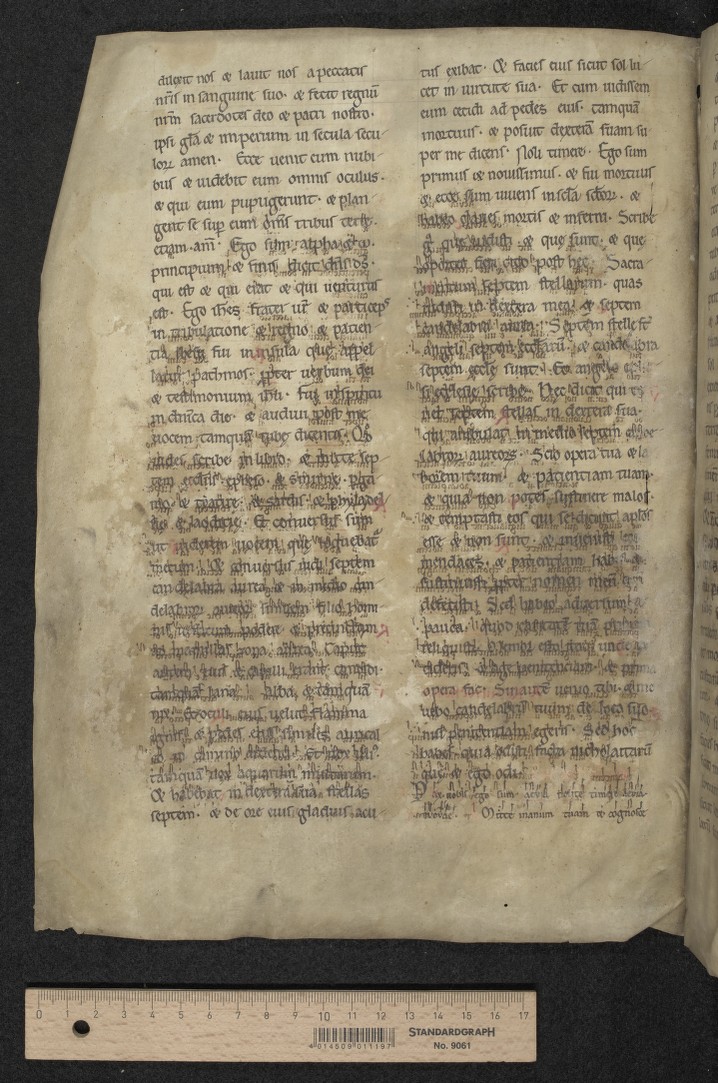 dilexit nos ⁊ lauit nos a peccatis
nr̃is in sanguine suo. ⁊ fecit regnũ
nr̃m sacerdotes deo ⁊ patri nostro.
ipsi gl̃a ⁊ imperium in secula secu
lorꝝ amen. Ecce uenit cum nubi
bus ⁊ uidebit eum omnis oculus.
⁊ qui eum pupugerunt. ⁊ plan
gent se sup̃ eum om̃s tribus terre.
etiam. am̃. Ego sum alpha ⁊ ω.
principium ⁊ finis dicit dñs ds̃.
qui est ⁊ qui erat ⁊ qui uenturus
est. Ego ioh̃es frater ur̃ ⁊ particeps
in tribulatione ⁊ regno ⁊ patien
tia fui in insula que appel
latur pathmos. propter uerbum dei
⁊ testimonium ih̃u. fui in spiritu
in dñica die. ⁊ audiui post me
uocem tamquã tube dicentis. Qđ
uides scribe in libro. ⁊ mitte sep
tem eccl̃iis. epheso. ⁊ smirne.
⁊ tiatire. ⁊ sardis. ⁊ philadel
⁊ laodicie. Et conuersus sum
ut uiderem uocem que loquebat̃
mecum. Et conuersus uidi septem
candelabra aurea. ⁊ in medio can
delabrorꝝ aureorꝝ similem filio homi
nis uestitum podere. ⁊ precinctum
ad mamillas zona aurea. Caput
autem eius ⁊ capilli erant candidi.
tamquam lana alba. ⁊ tamquã
nix. Et oculi eius uelut flamma
ignis. ⁊ pedes eius similes aurical
co in camino ardenti. Et uox illi.
tamquã uox aquarum multarum.
Et habebat in dextera sua stellas
septem. ⁊ de ore eius gladius acu
tus exibat. Et facies eius sicut sol lu
cet in uirtute sua. Et cum uidissem
eum cecidi ad pedes eius. tamquã
mortuus. ⁊ posuit dexterã suam su
per me dicens. Noli timere. Ego sum
primus ⁊ nouissimus. ⁊ fui mortuus
⁊ ecce sum uiuens in sc̃la sc̃lorꝝ. ⁊
habeo claues mortis ⁊ inferni. Scribe
que uidisti. ⁊ que sunt. ⁊ que
oportet fieri cito post hec. Sacra
mentum septem stellarum. quas
uidisti in dextera mea. ⁊ septem
candelabra aurea. Septem stelle sr̃
angeli septem eccl̃iarũ. ⁊ candelabra
septem eccl̃e sunt. Et angelo
ecclesie scribe. Hec dicit qui te
net septem stellas in dextera sua.
qui ambulat in medio septem
labrorꝝ aureorꝝ. Scio opera tua ⁊ la
borem tuum. ⁊ patientiam tuam.
⁊ quia non potes sustinere malos.
⁊ temptasti eos qui se dicunt apl̃os
esse ⁊ non sunt. ⁊ inuenisti eos
mendaces. ⁊ patientiam habes
sustinuisti propter nomen meũ
defecisti. Sed habeo aduersum te
pauca. quod caritatẽ tuã primam
reliquisti. Memor esto itaque unde
⁊ age penitentiam. ⁊ prima
opera fac. Sin autẽ uenio tibi. ⁊
uebo candelabrũ tuum de loco suo
nisi penitentiam egeris. Sed hoc
habes quia odisti facta nicholaitarũ
que ⁊ ego odi.
Pax uobis ego sum. nolite timere
Mitte manum tuam ⁊ cognosce
0 1 2 3 4 5 6 7 8 9 10 11 12 13 14 15 16 17
STANDARDGRAPH
4 014509 011197
No. 9061